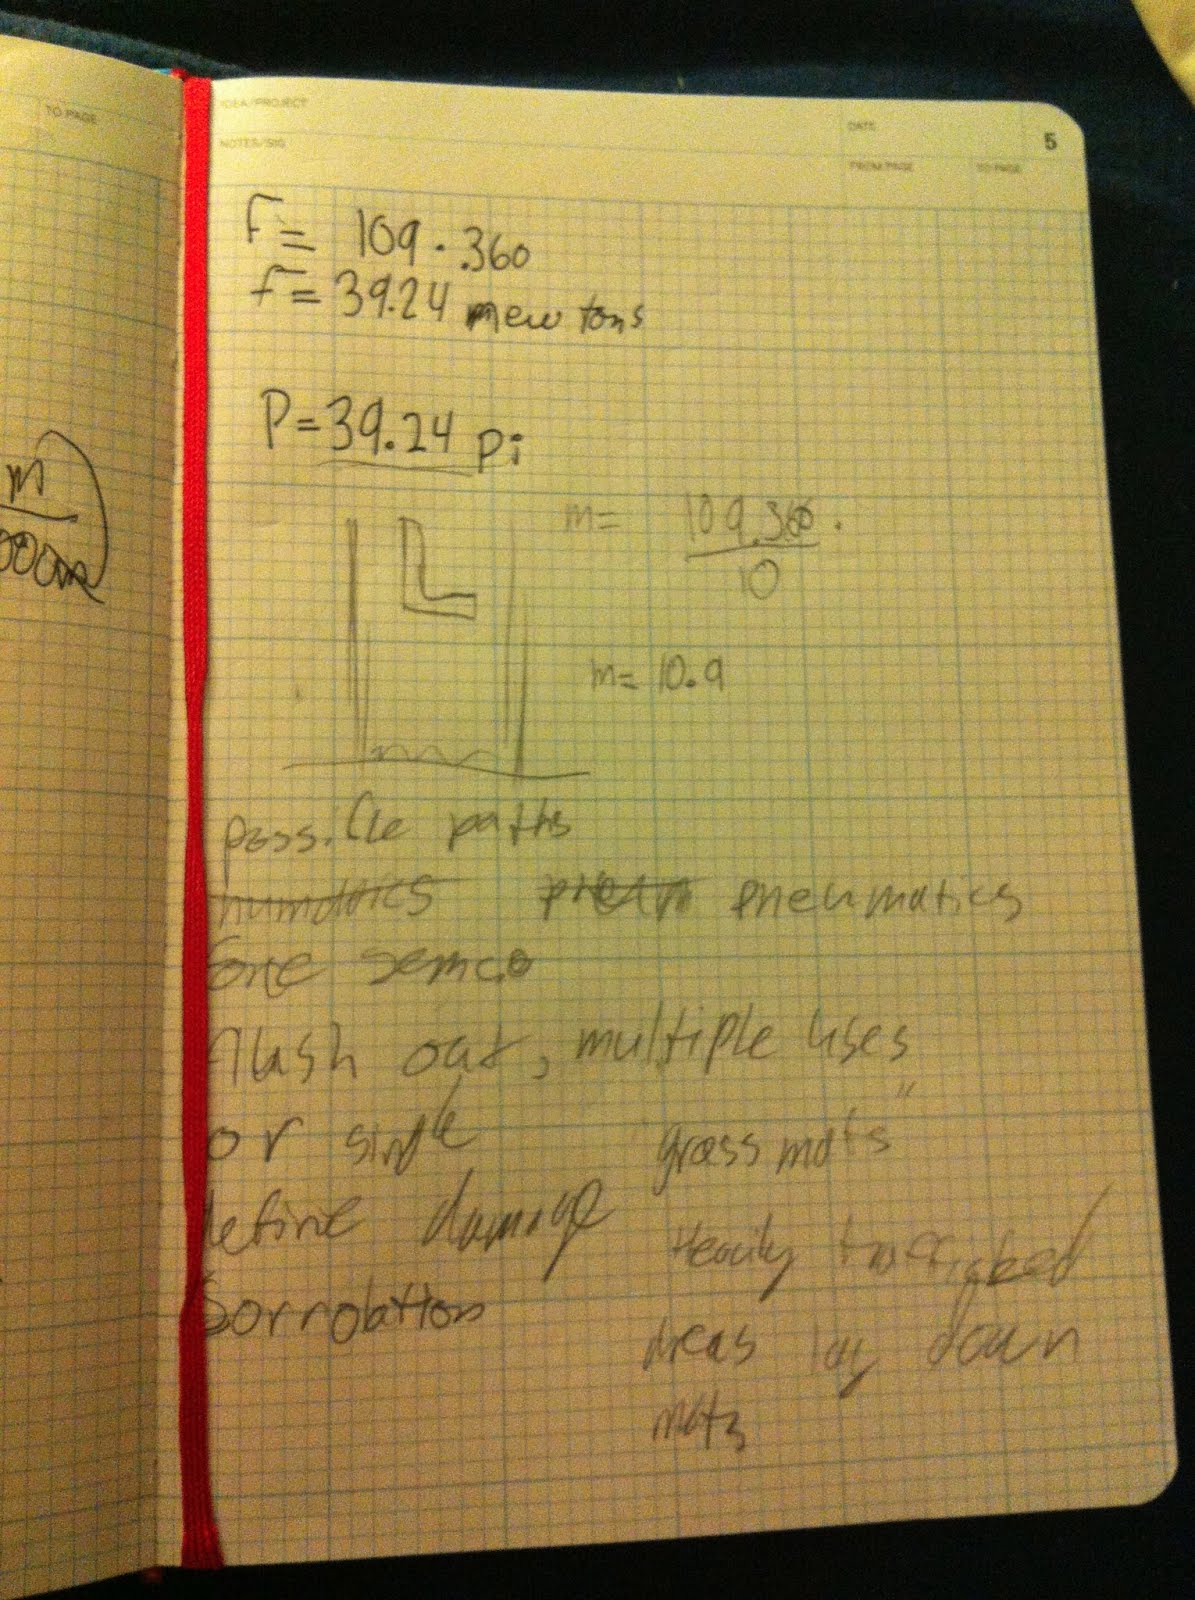 TO PAGE
IDEA/PROJECT
NOTES/SIG
DATE
FROM PAGE
TO PAGE
5
F= 109 · .360
F= 39.24 newtons
P= 39.24 pi
m
m= 109.360.
10
m= 10.9
possible paths
pneumatics
flash out, multiple uses
or single
"grass mats"
define damage
Heavily trafficked
areas lay down
mats